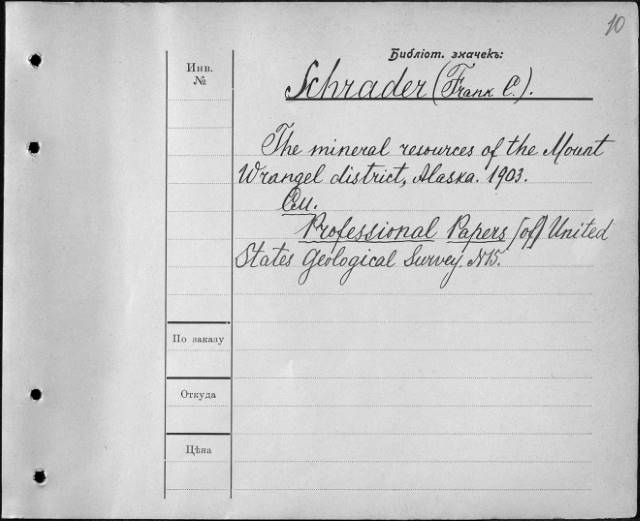 10
Библіот. значекъ:
Инв.
№
Schrader (Frank C.).
The mineral resources of the Mount
Wrangel district, Alaska. 1903.
См.
Professional Papers [of] United
States Geological Survey. N15.
По заказу
Откуда
Цѣна